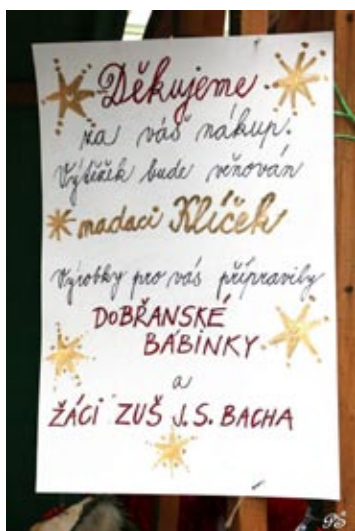 Děkujeme
za váš nákup.
Výtěžek bude věnován
nadaci Klíček
Výrobky pro vás připravily
DOBŘANSKÉ
BÁBINKY
a
ŽÁCI ZUŠ J. S. BACHA